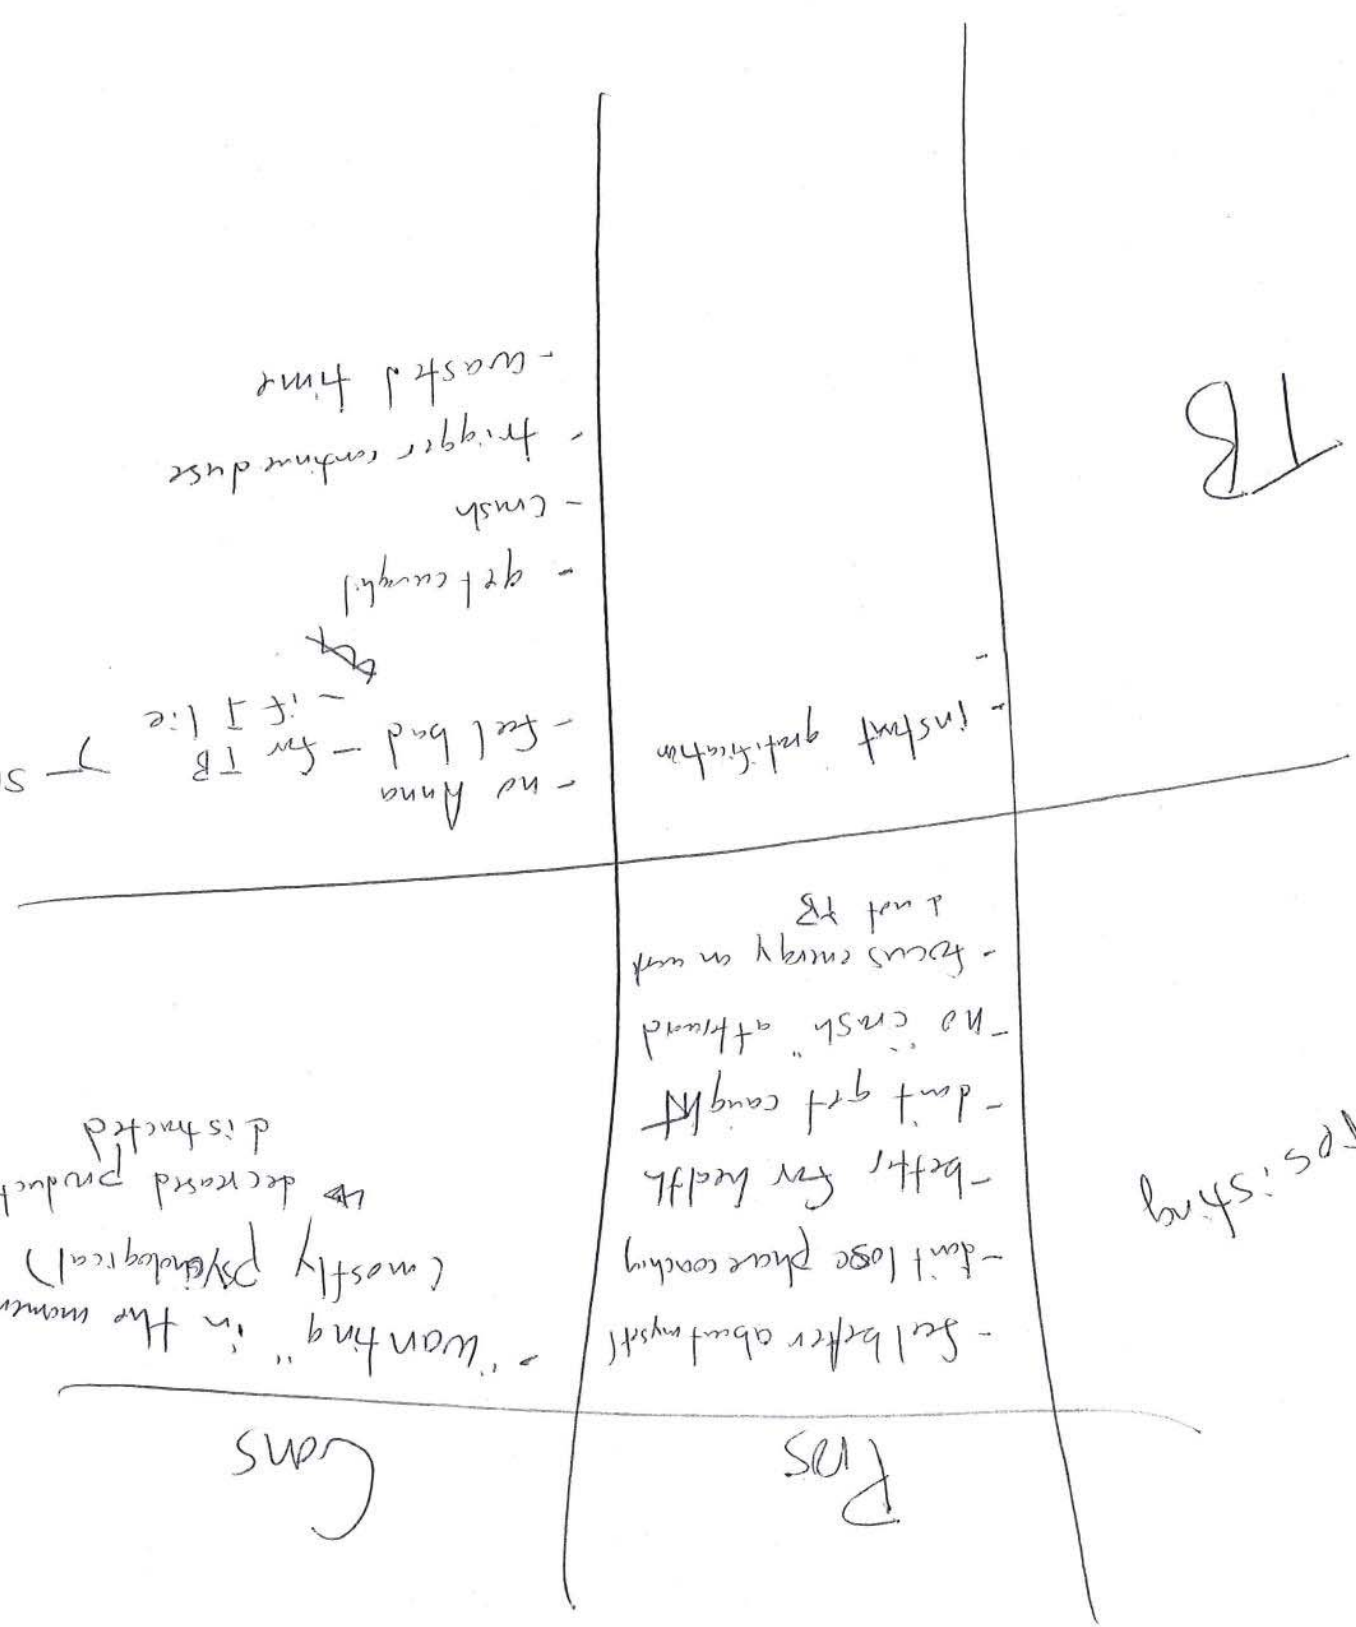 Pros
Cons
- feel better about myself
- don't lose phone coaching
- better for health
- don't get caught
- no "crash" afterward
- focus energy on work
& not TB
- "wanting" in the
(mostly psychological)
decreased
distracted
TB
- instant gratification
-
- no Anna
- feel bad - for TB
- if I lie
- get caught
- crash
- trigger continued use
- wasted time